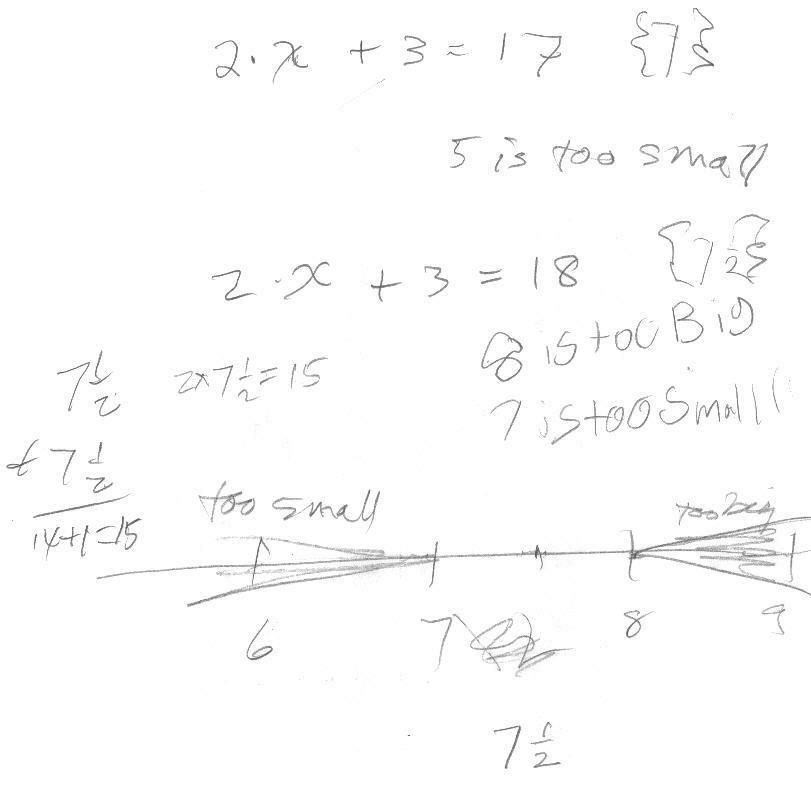 2·x + 3 = 17 {7}
5 is too small
2·x + 3 = 18 {7 1/2}
8 is too Big
7 is too small
7 1/2 2x7 1/2=15
+7 1/2
14+1=15
too small too big
6 7 8 9
7 1/2